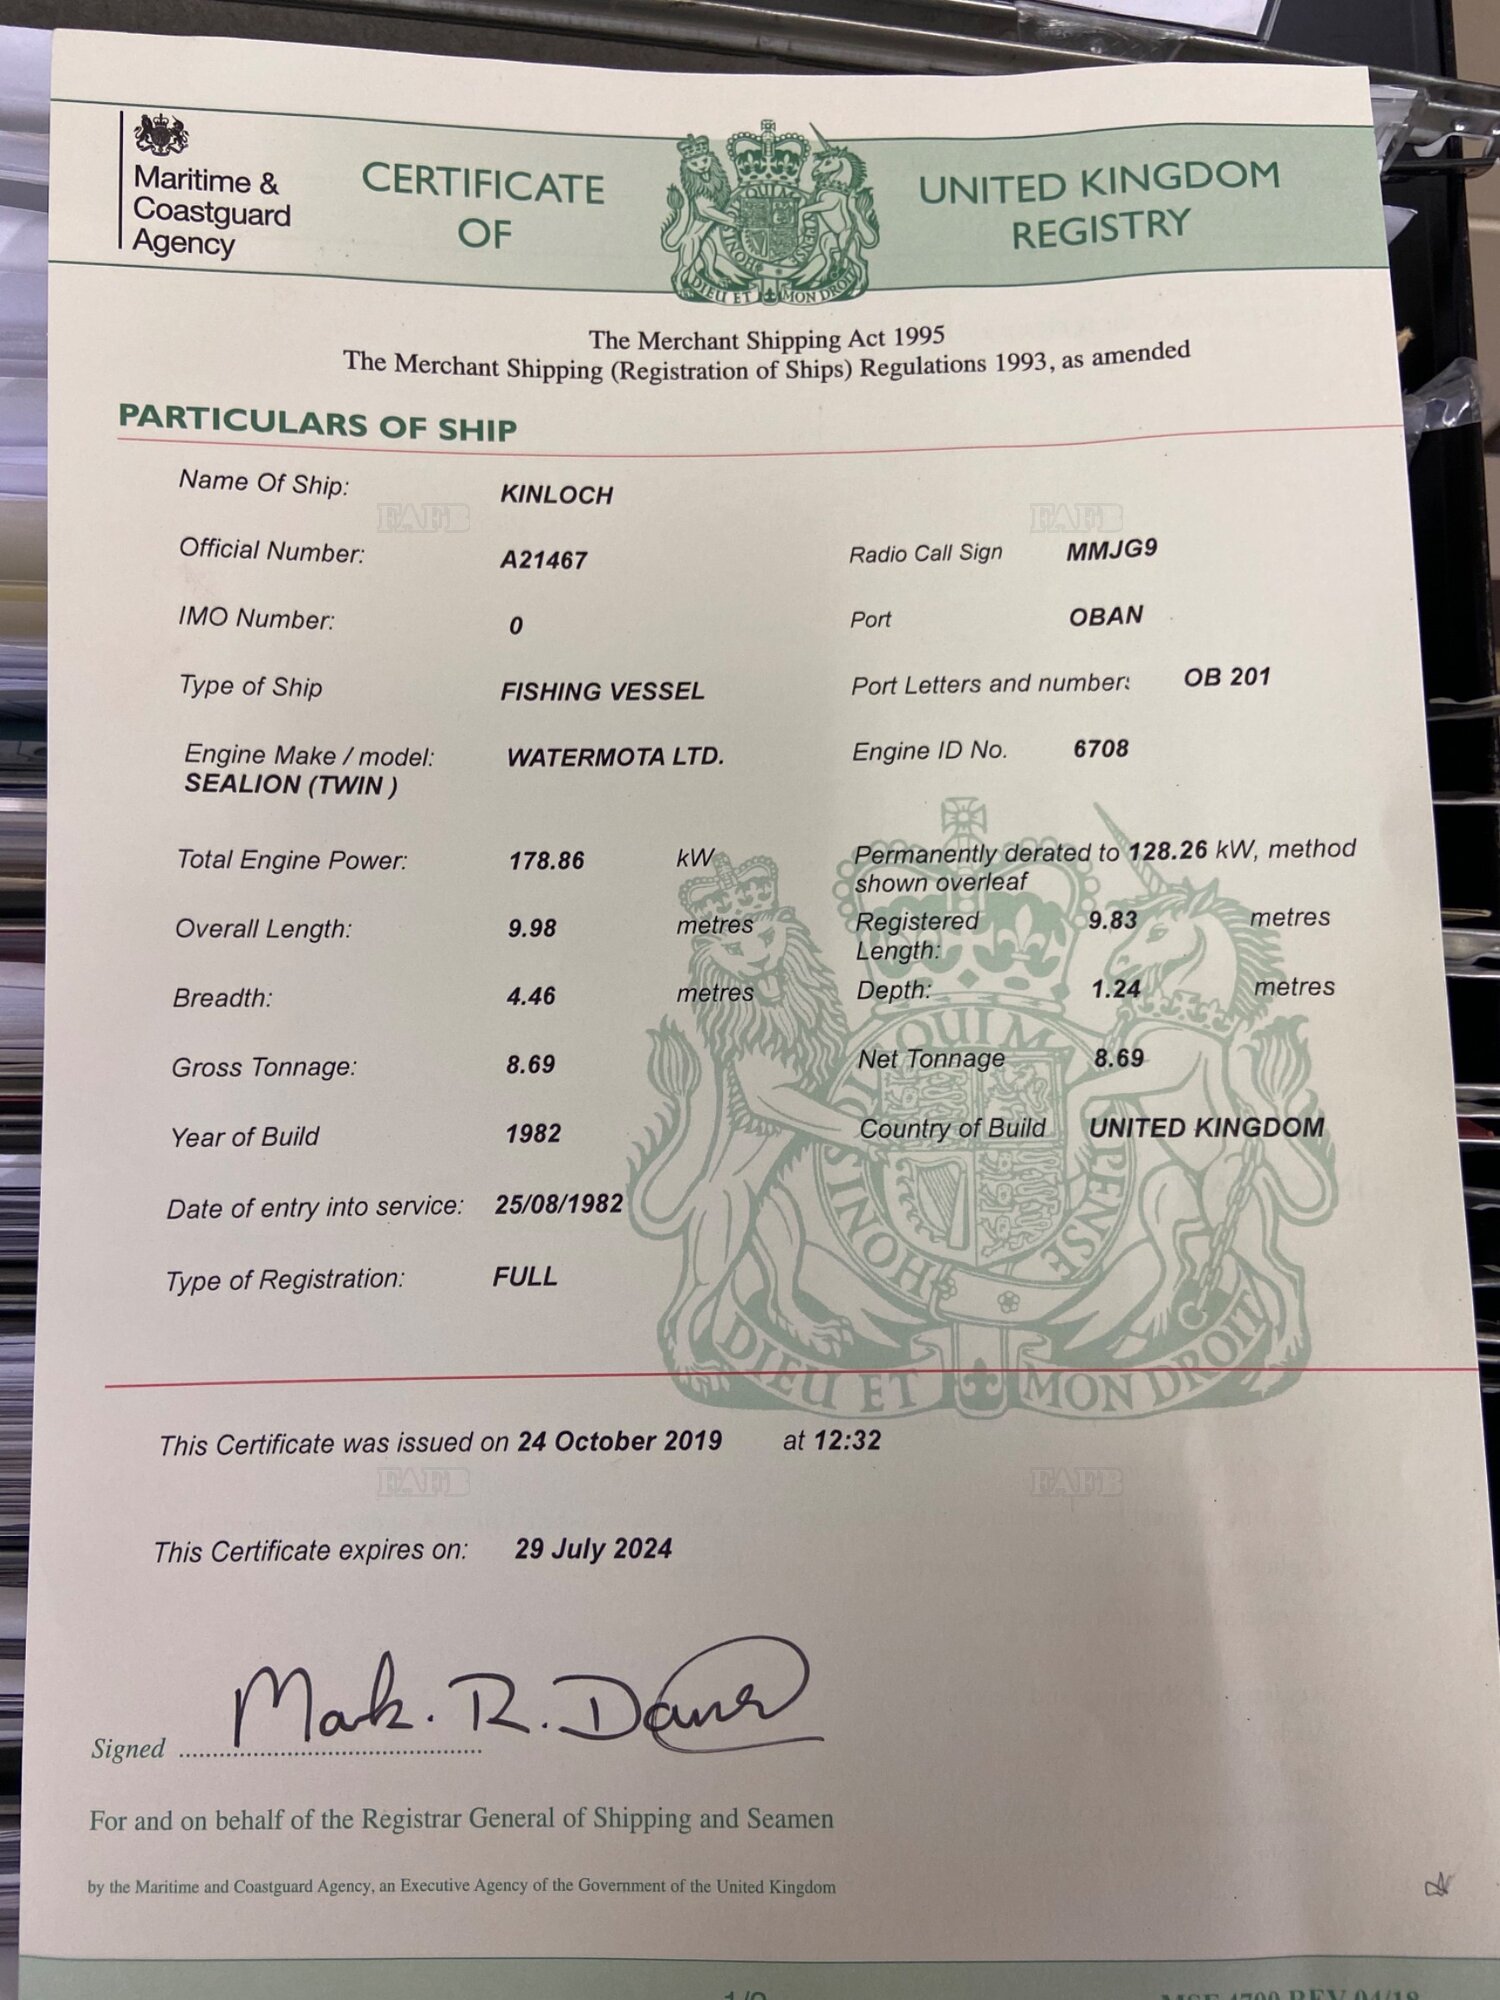 Maritime &
Coastguard
Agency
CERTIFICATE
OF
UNITED KINGDOM
REGISTRY
DIEU ET MON DROIT
The Merchant Shipping Act 1995
The Merchant Shipping (Registration of Ships) Regulations 1993, as amended
PARTICULARS OF SHIP
Name Of Ship: KINLOCH
FAFB FAFB
Official Number: A21467 Radio Call Sign MMJG9
IMO Number: 0 Port OBAN
Type of Ship FISHING VESSEL Port Letters and number: OB 201
Engine Make / model: WATERMOTA LTD. Engine ID No. 6708
SEALION (TWIN )
Total Engine Power: 178.86 kW Permanently derated to 128.26 kW, method
shown overleaf
Overall Length: 9.98 metres Registered 9.83 metres
Length:
Breadth: 4.46 metres Depth: 1.24 metres
QUI M
Gross Tonnage: 8.69 Net Tonnage 8.69
Year of Build 1982 Country of Build UNITED KINGDOM
HONI S
PENSE
Date of entry into service: 25/08/1982
Type of Registration: FULL
DIEU ET MON DROIT
This Certificate was issued on 24 October 2019 at 12:32
FAFB FAFB
This Certificate expires on: 29 July 2024
Signed Mark. R.
For and on behalf of the Registrar General of Shipping and Seamen
by the Maritime and Coastguard Agency, an Executive Agency of the Government of the United Kingdom